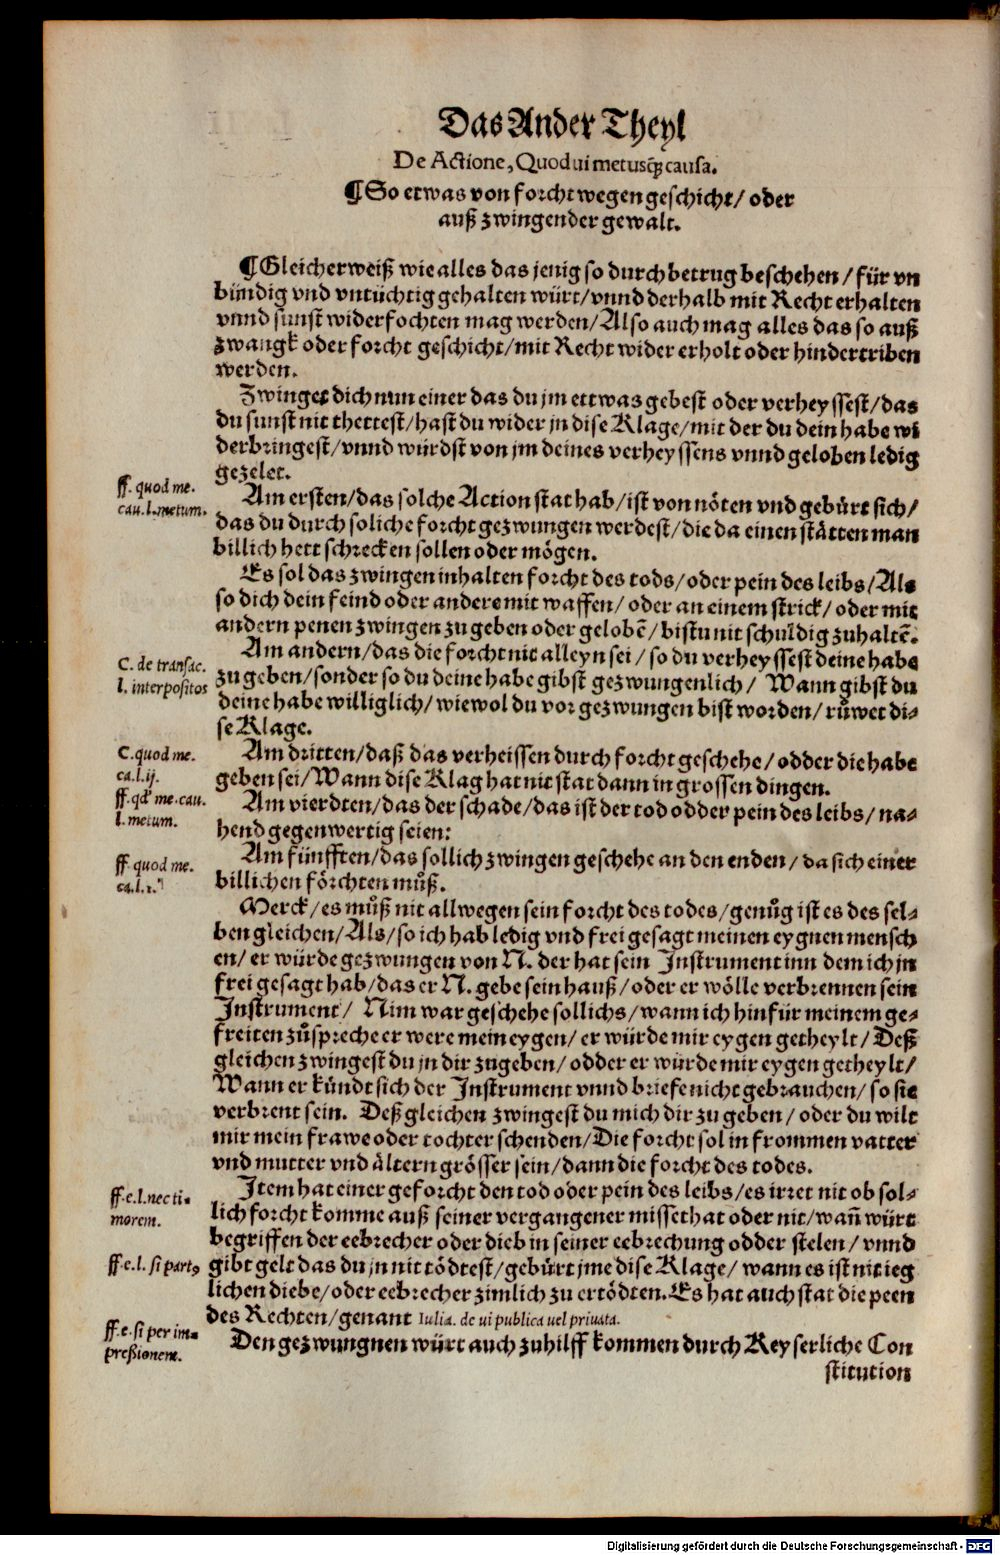 Das Ander Theyl
De Actione, Quod ui metusq́; causa.
¶So etwas von forcht wegen geschicht/ oder
auß zwingender gewalt.
¶Gleicherweiß wie alles das jenig so durch betrug beschehen/ für vn
bündig vnd vntüchtig gehalten würt/ vnnd derhalb mit Recht erhalten
vnnd sunst widerfochten mag werden/ Also auch mag alles das so auß
zwangk oder forcht geschicht/ mit Recht wider erholt oder hindertriben
werden.
Zwinget dich nun einer das du jm ettwas gebest oder verheyssest/ das
du sunst nit thettest/ hast du wider jn dise Klage/ mit der du dein habe wi
derbringest/ vnnd würdst von jm deines verheyssens vnnd geloben ledig
gezelet.
ff. quod me.
cau. l. metum.
Am ersten/ das solche Action stat hab/ ist von nöten vnd gebürt sich/
das du durch soliche forcht gezwungen werdest/ die da einen stätten man
billich hett schrecken sollen oder mögen.
Es sol das zwingen inhalten forcht des tods/ oder pein des leibs/ Als
so dich dein feind oder andere mit waffen/ oder an einem strick/ oder mit
andern penen zwingen zu geben oder gelobē/ bistu nit schuldig zuhaltē.
C. de transac.
l. interpositos
Am andern/ das die forcht nit alleyn sei/ so du verheyssest deine habe
zu geben/ sonder so du deine habe gibst gezwungenlich/ Wann gibst du
deine habe williglich/ wiewol du vor gezwungen bist worden/ růwet di-
se Klage.
C. quod me.
ca. l. ij.
Am dritten/ daß das verheissen durch forcht geschehe/ odder die habe
geben sei/ Wann dise Klag hat nit stat dann in grossen dingen.
ff. qđ me. cau.
l. metum.
Am vierdten/ das der schade/ das ist der tod odder pein des leibs/ na-
hend gegenwertig seien:
ff. quod me.
ca. l. 1.
Am fünfften/ das sollich zwingen geschehe an den enden/ da sich einer
billichen förchten můß.
Merck/ es můß nit allwegen sein forcht des todes/ genůg ist es des sel-
ben gleichen/ Als/ so ich hab ledig vnd frei gesagt meinen eygnen mensch
en/ er würde gezwungen von N. der hat sein Instrument inn dem ich jn
frei gesagt hab/ das er N. gebe sein hauß/ oder er wölle verbrennen sein
Instrument/ Nim war geschehe sollichs/ wann ich hinfür meinem ge-
freiten zůspreche er were mein eygen/ er würde mir eygen getheylt/ Deß
gleichen zwingest du jn dir zugeben/ odder er würde mir eygen getheylt/
Wann er kündt sich der Instrument vnnd briefe nicht gebrauchen/ so sie
verbrent sein. Deß gleichen zwingest du mich dir zu geben/ oder du wilt
mir mein frawe oder tochter schenden/ Die forcht sol in frommen vatter
vnd mutter vnd ältern grösser sein/ dann die forcht des todes.
ff. e. l. nec ti-
morem.
Item hat einer geforcht den tod oder pein des leibs/ es irret nit ob sol-
lich forcht komme auß seiner vergangener missethat oder nit/ wañ würt
begriffen der eebrecher oder dieb in seiner eebrechung odder stelen/ vnnd
ff. e. l. si part9
gibt gelt das du jn nit tödtest/ gebürt jme dise Klage/ wann es ist nit ieg
lichen diebe/ oder eebrecher zimlich zu ertödten. Es hat auch stat die peen
des Rechten/ genant Iulia. de ui publica uel priuata.
ff. e. si per im-
preßionem.
Den gezwungnen würt auch zuhilff kommen durch Keyserliche Con
stitution
Digitalisierung gefördert durch die Deutsche Forschungsgemeinschaft - DFG